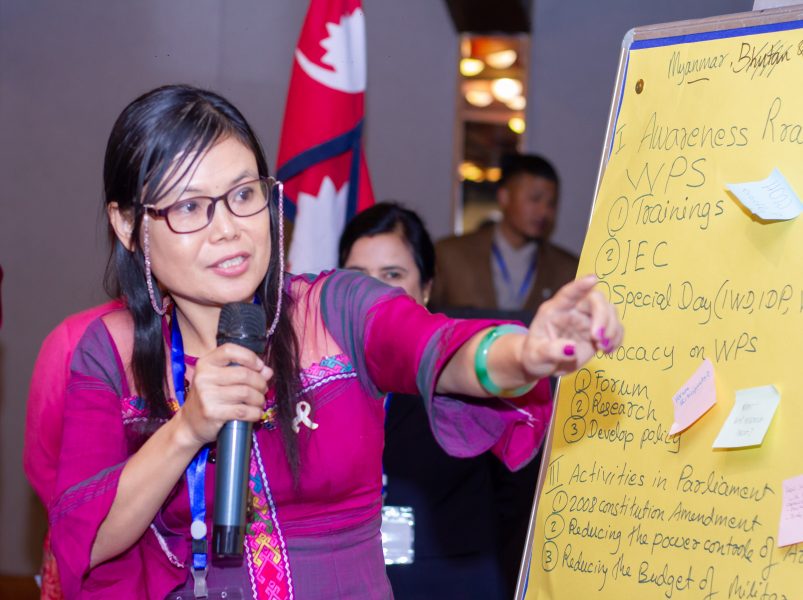 Myanmar, Bhutan &
I Awareness
WPS
① Trainings
② IEC
Special Day (IWD, IDP,
Advocacy on WPS
① Forum
② Research
③ Develop policy
III Activities in Parliament
① 2008 constitution Amendment
② Reducing the power controle of
③ Reducing the Budget of